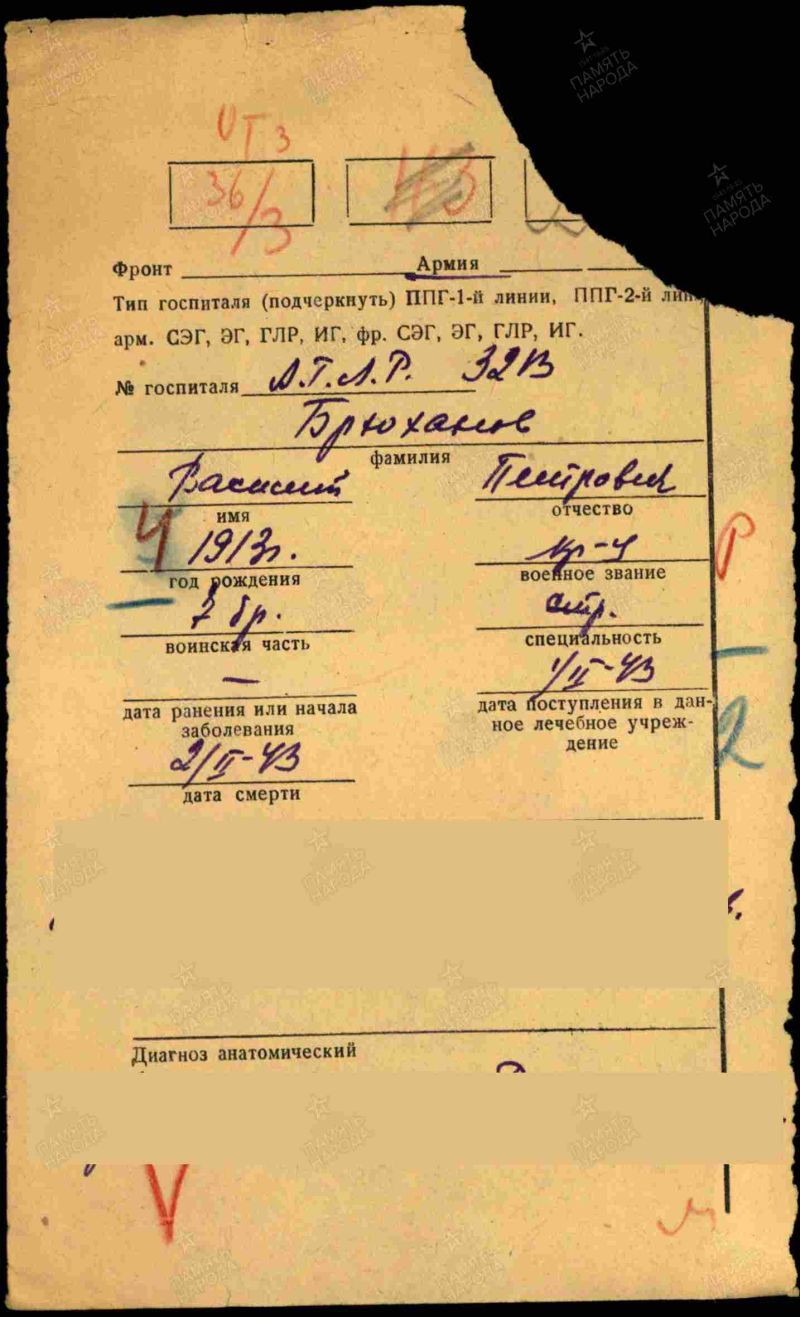 36/3
Фронт Армия
Тип госпиталя (подчеркнуть) ППГ-1-й линии, ППГ-2-й
арм. СЭГ, ЭГ, ГЛР, ИГ, фр. СЭГ, ЭГ, ГЛР, ИГ.
№ госпиталя
Брюханов
фамилия
Василий Петрович
имя отчество
Ч 1913г. кр-ц Р
год рождения военное звание
7 бр. стр.
воинская часть специальность
— 1/II-43
дата ранения или начала заболевания
дата поступления в дан-
ное лечебное учреж-
дение
2
2/II-43
дата смерти
Диагноз анатомический
ПАМЯТЬ НАРОДА